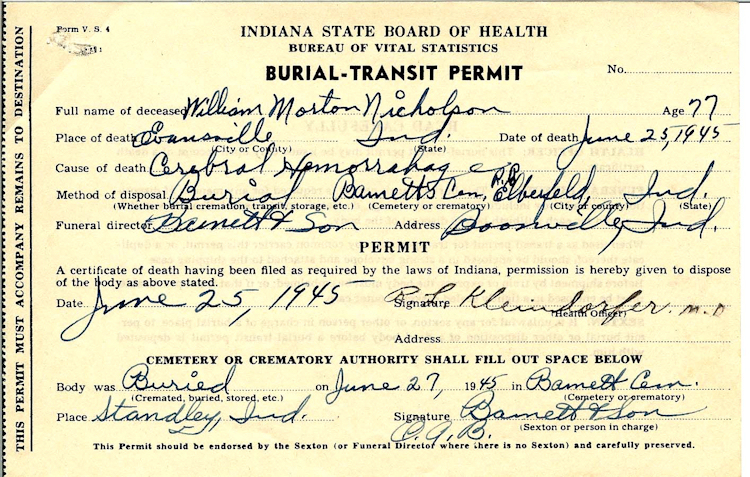 Form V. S. 4
INDIANA STATE BOARD OF HEALTH
BUREAU OF VITAL STATISTICS
BURIAL-TRANSIT PERMIT
No.
Full name of deceased William Morton Nicholson Age 77
Place of death Evansville Ind. Date of death June 25, 1945
(City or County) (State)
Cause of death Cerebral Hemorrahag
Method of disposal Burial Barnetts Cem, R.R. Elberfeld, Ind.
(Whether burial cremation, transit, storage, etc.) (Cemetery or crematory) (City or county) (State)
Funeral director Barnett & Son Address Boonville, Ind.
PERMIT
A certificate of death having been filed as required by the laws of Indiana, permission is hereby given to dispose
of the body as above stated.
Date June 25, 1945 Signature M.D
(Health Officer)
Address
CEMETERY OR CREMATORY AUTHORITY SHALL FILL OUT SPACE BELOW
Body was Buried on June 27, 1945 in Barnett Cem.
(Cremated, buried, stored, etc.) (Cemetery or crematory)
Place Standley, Ind. Signature Barnett & Son
(Sexton or person in charge)
C.A.B.
This Permit should be endorsed by the Sexton (or Funeral Director where there is no Sexton) and carefully preserved.
THIS PERMIT MUST ACCOMPANY REMAINS TO DESTINATION